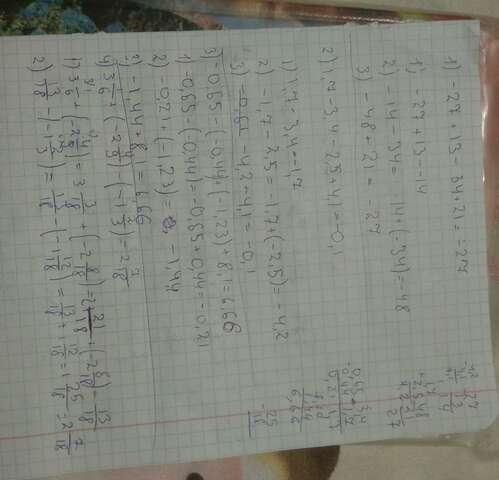 1) -27 + 13 - 34 + 21 = -27
1) -27 + 13 = -14
2) -14 - 34 = -14 + (-34) = -48
3) -48 + 21 = -27
2) 1,7 - 3,4 - 2,5 + 4,1 = -0,1
1) 1,7 - 3,4 = -1,7
2) -1,7 - 2,5 = -1,7 + (-2,5) = -4,2
3) -4,2 + 4,1 = -0,1
3) -0,65 - (-0,44) + (-1,23) + 8,1 = 6,66
1) -0,65 - (0,44) = -0,65 + 0,44 = -0,21
2) -0,21 + (-1,23) = -1,44
3) -1,44 + 8,1 = 6,66
4) 3 1/6 + (-2 4/9) - (-1 2/3) = 2 7/18
1) 3 1/6 + (-2 4/9) = 3 3/18 + (-2 8/18) = 2 21/18 + (-2 8/18) = 13/18
2) 13/18 - (-1 2/3) = 13/18 - (-1 12/18) = 13/18 + 1 12/18 = 1 25/18 = 2 7/18